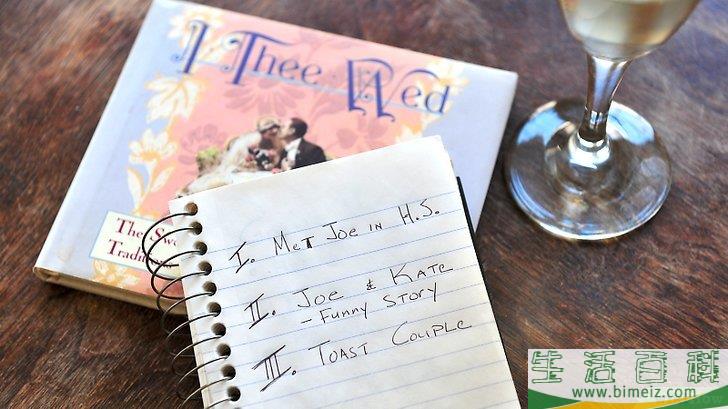 I Thee Wed
The Sw
Traditi
I. MET JOE IN H.S.
II. JOE & KATE
- FUNNY STORY
III. TOAST COUPLE
生活百科
www.bimeiz.com